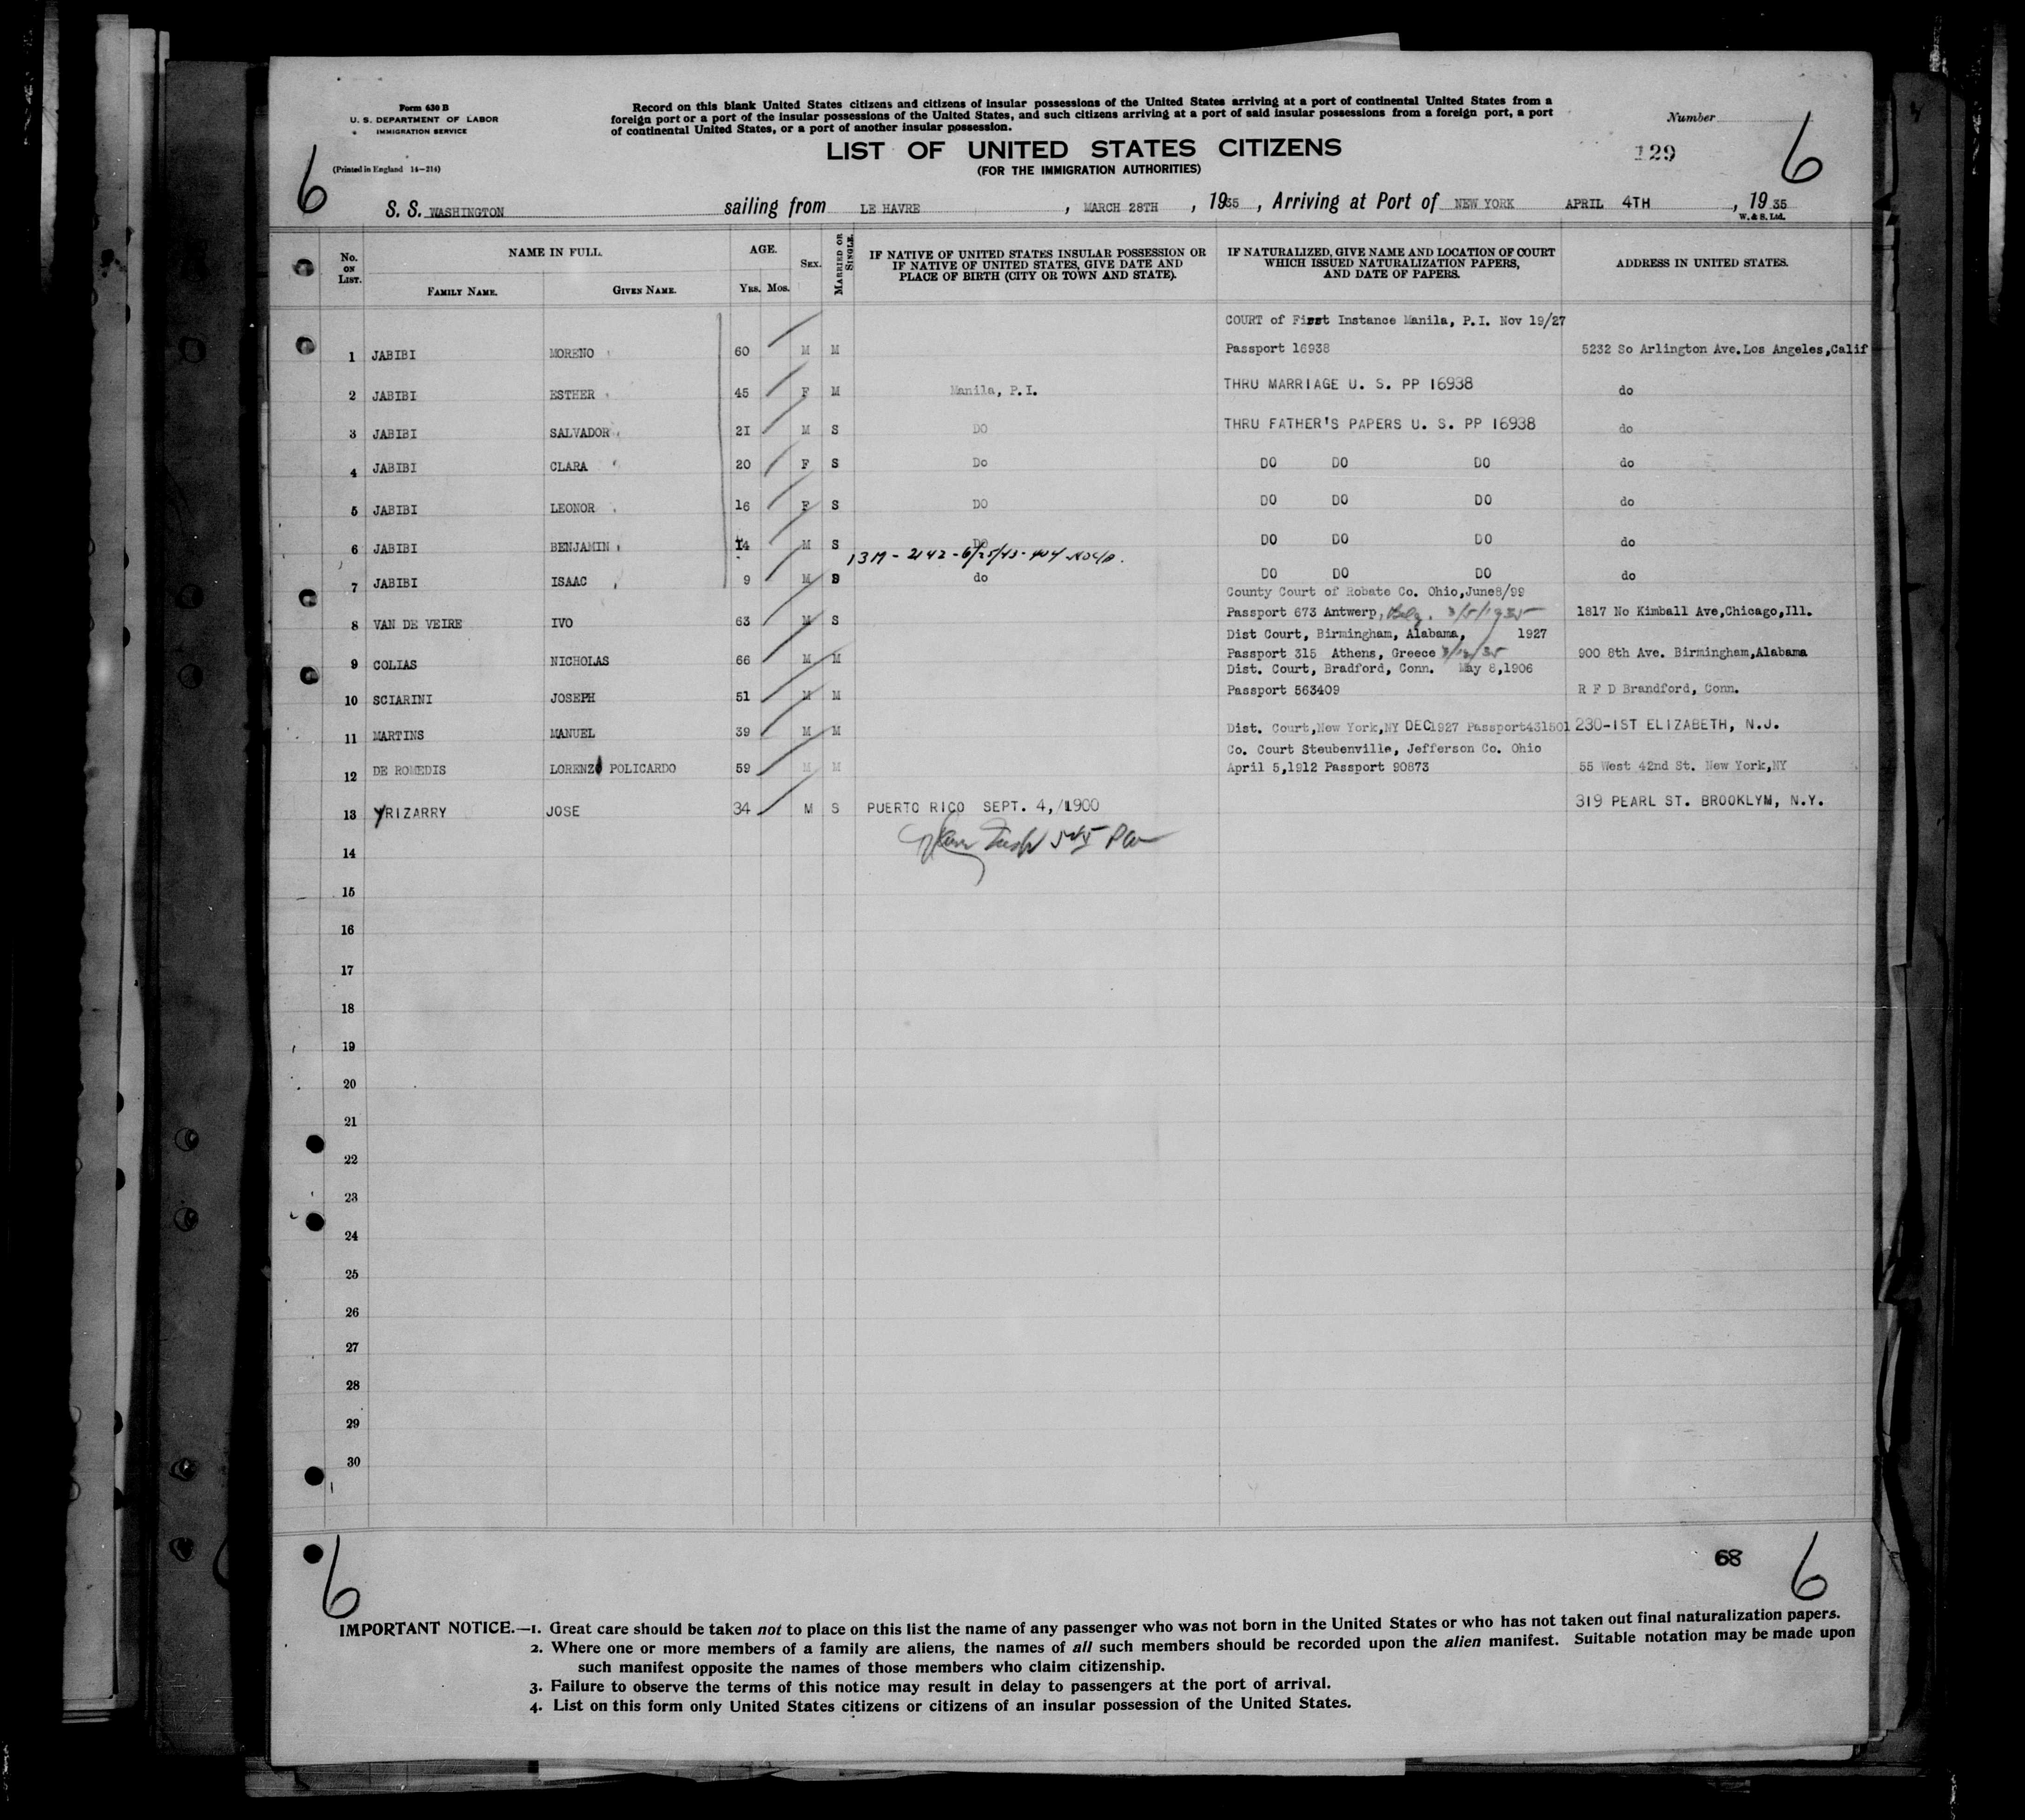 Form 630 B
U. S. DEPARTMENT OF LABOR
IMMIGRATION SERVICE
(Printed in England 14—214)
Record on this blank United States citizens and citizens of insular possessions of the United States arriving at a port of continental United States from a
foreign port or a port of the insular possessions of the United States, and such citizens arriving at a port of said insular possessions from a foreign port, a port
of continental United States, or a port of another insular possession.
Number
6
LIST OF UNITED STATES CITIZENS
129
6
(FOR THE IMMIGRATION AUTHORITIES)
S. S. WASHINGTON sailing from LE HAVRE , MARCH 28TH , 1935 , Arriving at Port of NEW YORK APRIL 4TH , 19 35
W. & S. Ltd.
No. ON LIST.
NAME IN FULL.
FAMILY NAME. GIVEN NAME.
AGE.
YRS. MOS.
SEX.
MARRIED OR SINGLE.
IF NATIVE OF UNITED STATES INSULAR POSSESSION OR
IF NATIVE OF UNITED STATES, GIVE DATE AND
PLACE OF BIRTH (CITY OR TOWN AND STATE).
IF NATURALIZED, GIVE NAME AND LOCATION OF COURT
WHICH ISSUED NATURALIZATION PAPERS,
AND DATE OF PAPERS.
ADDRESS IN UNITED STATES.
COURT of First Instance Manila, P.I. Nov 19/27
1 JABIBI MORENO 60 M M Passport 16938 5232 So Arlington Ave.Los Angeles,Calif
2 JABIBI ESTHER 45 F M Manila, P.I. THRU MARRIAGE U. S. PP 16938 do
3 JABIBI SALVADOR 21 M S DO THRU FATHER'S PAPERS U. S. PP 16938 do
4 JABIBI CLARA 20 F S Do DO DO DO do
5 JABIBI LEONOR 16 F S DO DO DO DO do
6 JABIBI BENJAMIN 14 M S DO DO DO DO do
7 JABIBI ISAAC 9 M S do DO DO DO do
County Court of Robate Co. Ohio,June8/99
8 VAN DE VEIRE IVO 63 M S Passport 673 Antwerp, Belg. 3/5/1935 1817 No Kimball Ave,Chicago,Ill.
Dist Court, Birmingham, Alabama, 1927
9 COLIAS NICHOLAS 66 M M Passport 315 Athens, Greece 900 8th Ave. Birmingham,Alabama
Dist. Court, Bradford, Conn. May 8,1906
10 SCIARINI JOSEPH 51 M M Passport 563409 R F D Brandford, Conn.
11 MARTINS MANUEL 39 M M Dist. Court,New York,NY DEC1927 Passport431501 230-1ST ELIZABETH, N.J.
Co. Court Steubenville, Jefferson Co. Ohio
12 DE ROMEDIS LORENZO POLICARDO 59 M M April 5,1912 Passport 90873 55 West 42nd St. New York,NY
13 YRIZARRY JOSE 34 M S PUERTO RICO SEPT. 4,/1900 319 PEARL ST. BROOKLYM, N.Y.
14
15
16
17
18
19
20
21
22
23
24
25
26
27
28
29
30
68
6
6
IMPORTANT NOTICE.—1. Great care should be taken not to place on this list the name of any passenger who was not born in the United States or who has not taken out final naturalization papers.
2. Where one or more members of a family are aliens, the names of all such members should be recorded upon the alien manifest. Suitable notation may be made upon
such manifest opposite the names of those members who claim citizenship.
3. Failure to observe the terms of this notice may result in delay to passengers at the port of arrival.
4. List on this form only United States citizens or citizens of an insular possession of the United States.